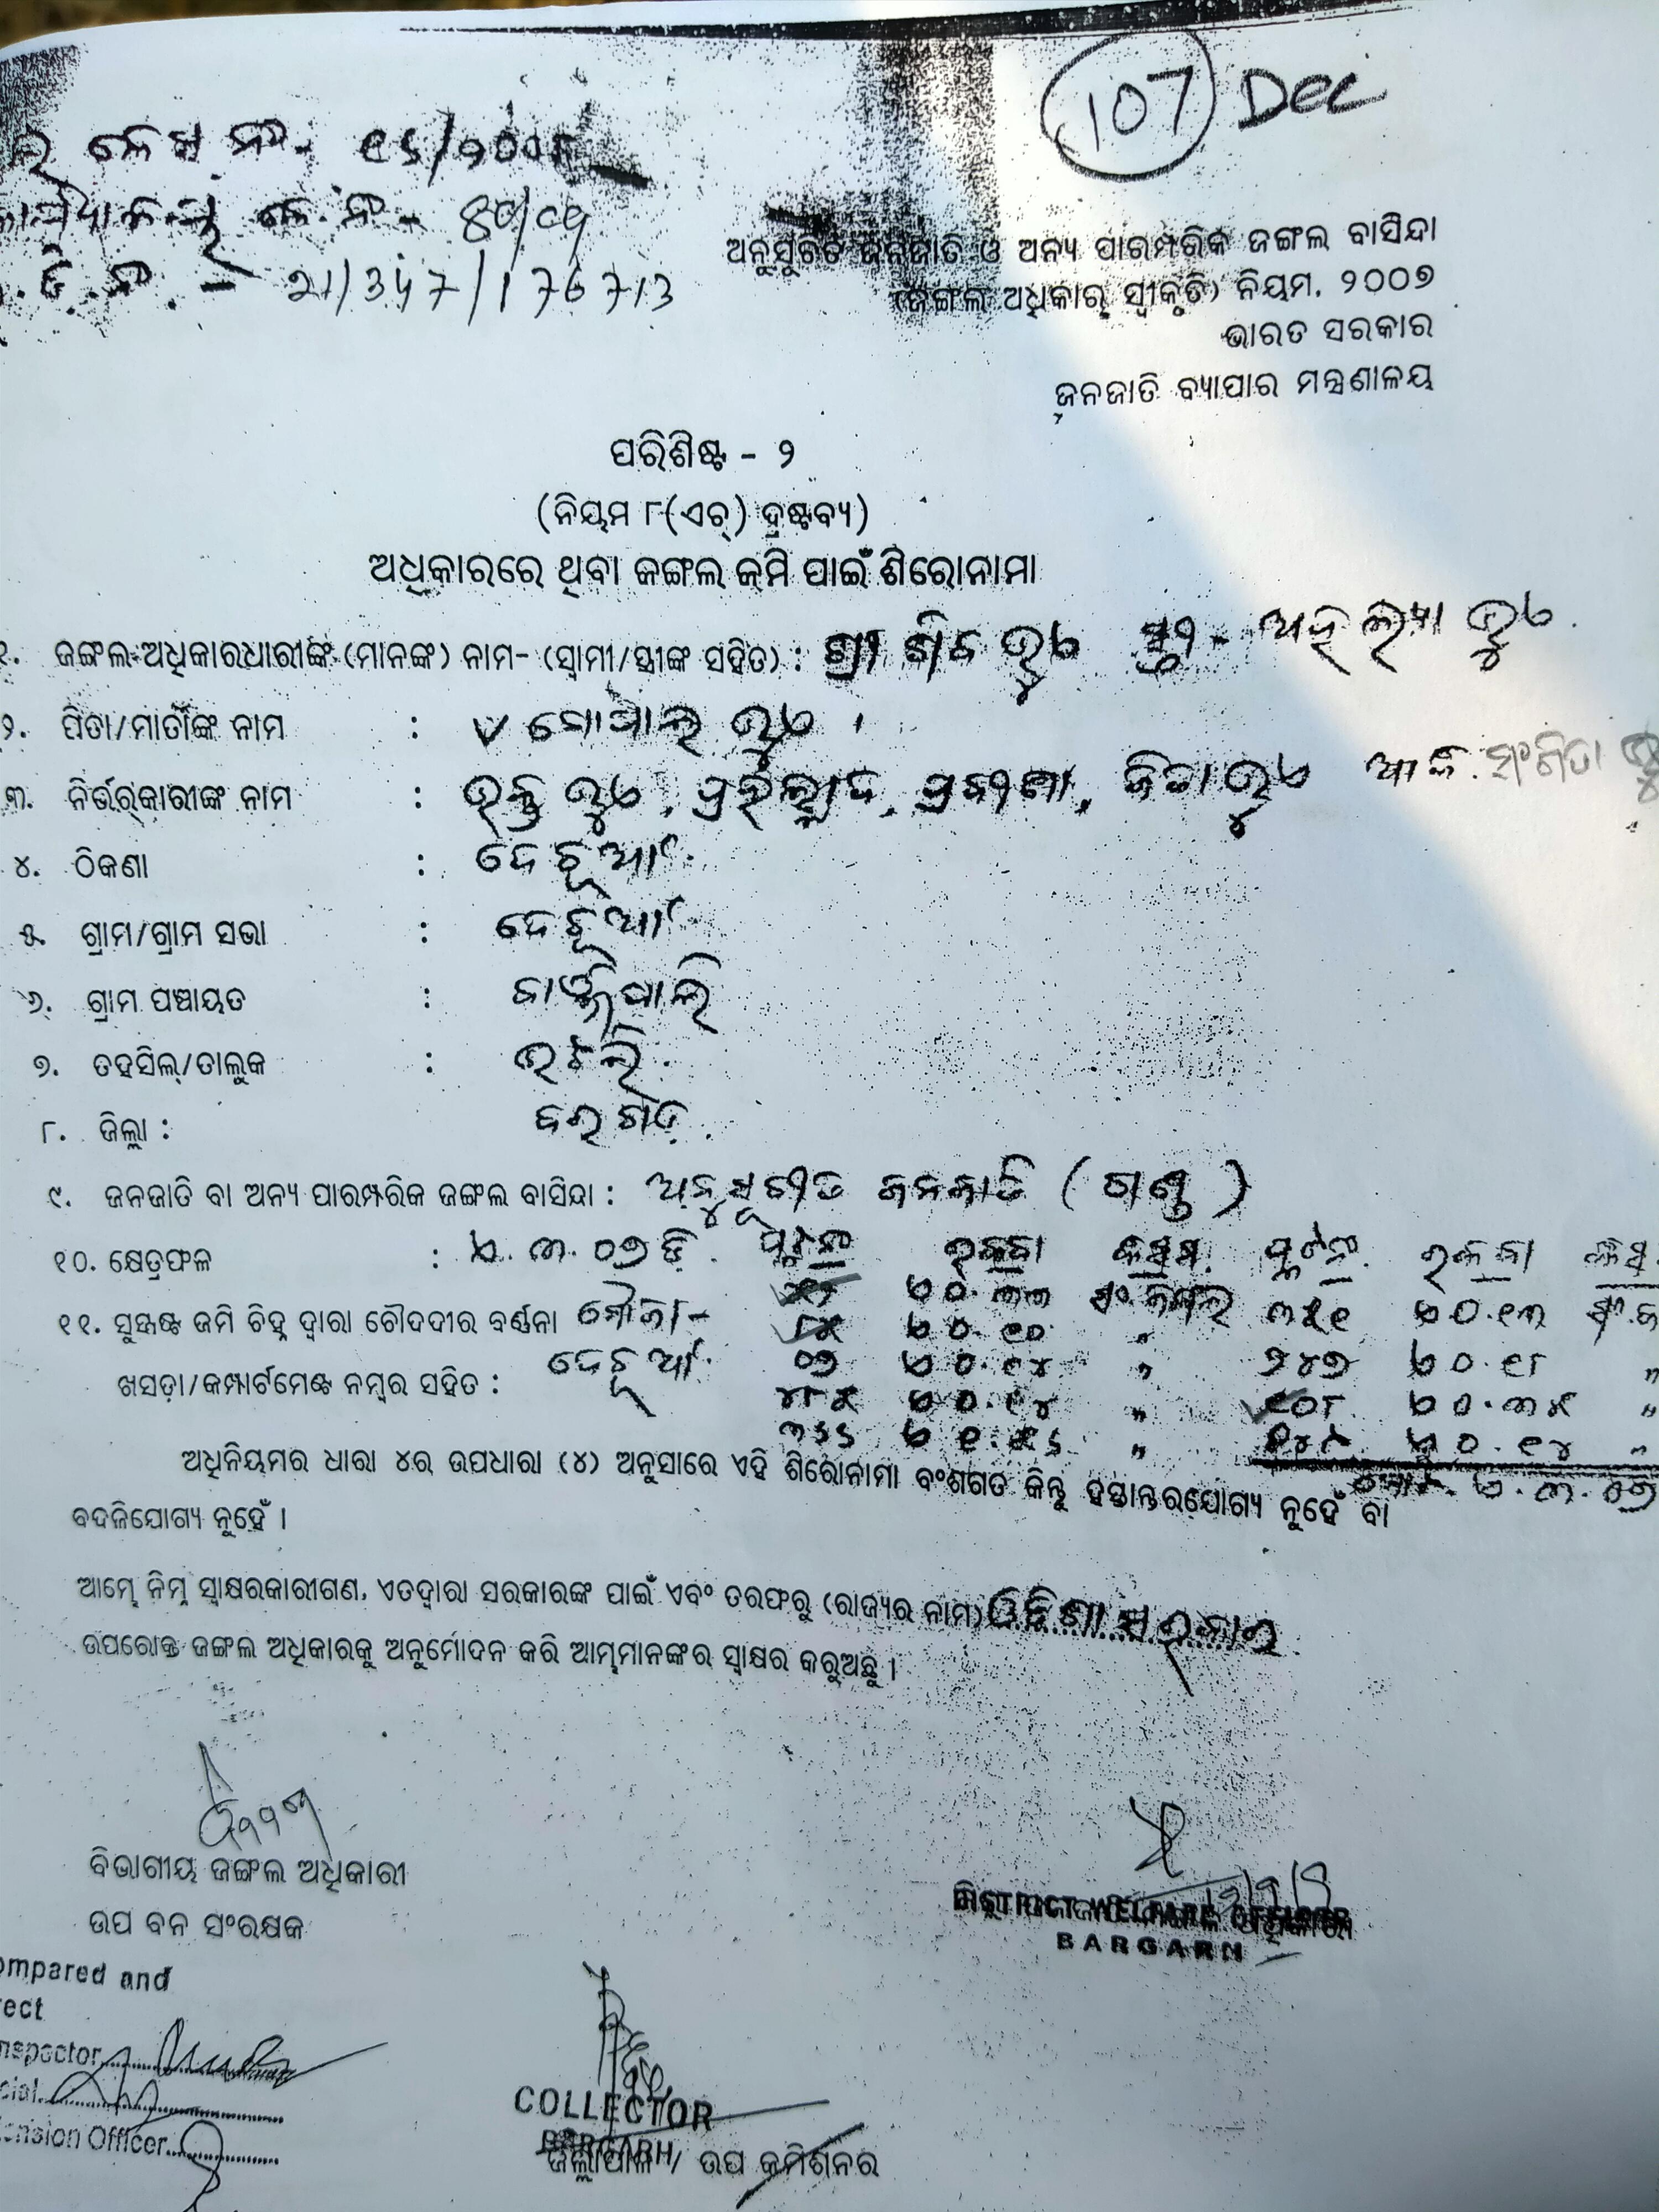 107 Dec
କେସ ନଂ- ୧୬/୨୦୦୮
କେ.ନଂ - ୫୦/୦୩
21/347/176713
ଅନୁସୂଚିତ ଜନଜାତି ଓ ଅନ୍ୟ ପାରମ୍ପରିକ ଜଙ୍ଗଲ ବାସିନ୍ଦା
(ଜଙ୍ଗଲ ଅଧିକାର ସ୍ୱୀକୃତି) ନିୟମ, ୨୦୦୭
ଭାରତ ସରକାର
ଜନଜାତି ବ୍ୟାପାର ମନ୍ତ୍ରଣାଳୟ
ପରିଶିଷ୍ଟ - ୨
(ନିୟମ ୮(ଏଚ୍) ଦ୍ରଷ୍ଟବ୍ୟ)
ଅଧିକାରରେ ଥିବା ଜଙ୍ଗଲ ଜମି ପାଇଁ ଶିରୋନାମା
୧. ଜଙ୍ଗଲ ଅଧିକାରଧାରୀଙ୍କ (ମାନଙ୍କ) ନାମ- (ସ୍ୱାମୀ/ସ୍ତ୍ରୀଙ୍କ ସହିତ) : ଶ୍ରୀ ଶିବ ଭୁଏ ସ୍ତ୍ରୀ - ଅହଲ୍ୟା ଭୁଏ
୨. ପିତା/ମାତାଙ୍କ ନାମ : ଗୋପାଲ ଭୁଏ
୩. ନିର୍ଭରକାରୀଙ୍କ ନାମ : ଭକ୍ତ ଭୁଏ, ପ୍ରହଲ୍ଲାଦ,
୪. ଠିକଣା : ଦେଚୂଆଁ
୫. ଗ୍ରାମ/ଗ୍ରାମ ସଭା : ଦେଚୂଆଁ
୬. ଗ୍ରାମ ପଞ୍ଚାୟତ :
୭. ତହସିଲ୍/ତାଲୁକ : ଭଟଲି
୮. ଜିଲ୍ଲା : ବରଗଡ଼
୯. ଜନଜାତି ବା ଅନ୍ୟ ପାରମ୍ପରିକ ଜଙ୍ଗଲ ବାସିନ୍ଦା : ଅନୁସୂଚୀତ ଜନଜାତି (ଗଣ୍ଡ)
୧୦. କ୍ଷେତ୍ରଫଳ : ଏ. ୩.୦୭ ଡି. ପ୍ଲଟ ନଂ ରକବା କିସମ ପ୍ଲଟ ନଂ ରକବା କିସମ
୧୧. ସୁସ୍ପଷ୍ଟ ଜମି ଚିହ୍ନ ଦ୍ୱାରା ଚୌଦଦୀର ବର୍ଣ୍ଣନା ମୌଜା - ଏ୦.୩୩ ସଂ.ଜଙ୍ଗଲ ୩୫୧ ଏ୦.୧୩
୮୫ ଏ୦.୧୦ "
ଖସଡ଼ା/କମ୍ପାର୍ଟମେଣ୍ଟ ନମ୍ବର ସହିତ : ଦେଚୂଆଁ ୦୭ ଏ୦.୧୪ " ୨୪୭ ଏ୦.୧୮ "
୪୮୫ ଏ୦.୧୪ " ୧୦୮ ଏ୦.୩୫ "
୩୬୬ ଏ୧.୫୬ " ଏ୦.୧୪ "
ଏ.୩.୦୭
ଅଧିନିୟମର ଧାରା ୪ର ଉପଧାରା (୪) ଅନୁସାରେ ଏହି ଶିରୋନାମା ବଂଶଗତ କିନ୍ତୁ ହସ୍ତାନ୍ତରଯୋଗ୍ୟ ନୁହେଁ ବା
ବଦଳିଯୋଗ୍ୟ ନୁହେଁ ।
ଆମ୍ଭେ ନିମ୍ନ ସ୍ୱାକ୍ଷରକାରୀଗଣ, ଏତଦ୍ୱାରା ସରକାରଙ୍କ ପାଇଁ ଏବଂ ତରଫରୁ (ରାଜ୍ୟର ନାମ) ଓଡ଼ିଶା ସରକାର
ଉପରୋକ୍ତ ଜଙ୍ଗଲ ଅଧିକାରକୁ ଅନୁମୋଦନ କରି ଆମ୍ଭମାନଙ୍କର ସ୍ୱାକ୍ଷର କରୁଅଛୁ ।
ବିଭାଗୀୟ ଜଙ୍ଗଲ ଅଧିକାରୀ
ଉପ ବନ ସଂରକ୍ଷକ
DISTRICT WELFARE OFFICER
BARGARH
ompared and
rect
nspector
cial
tension Officer
COLLECTOR
BARGARH
ଜିଲ୍ଲାପାଳ / ଉପ କମିଶନର